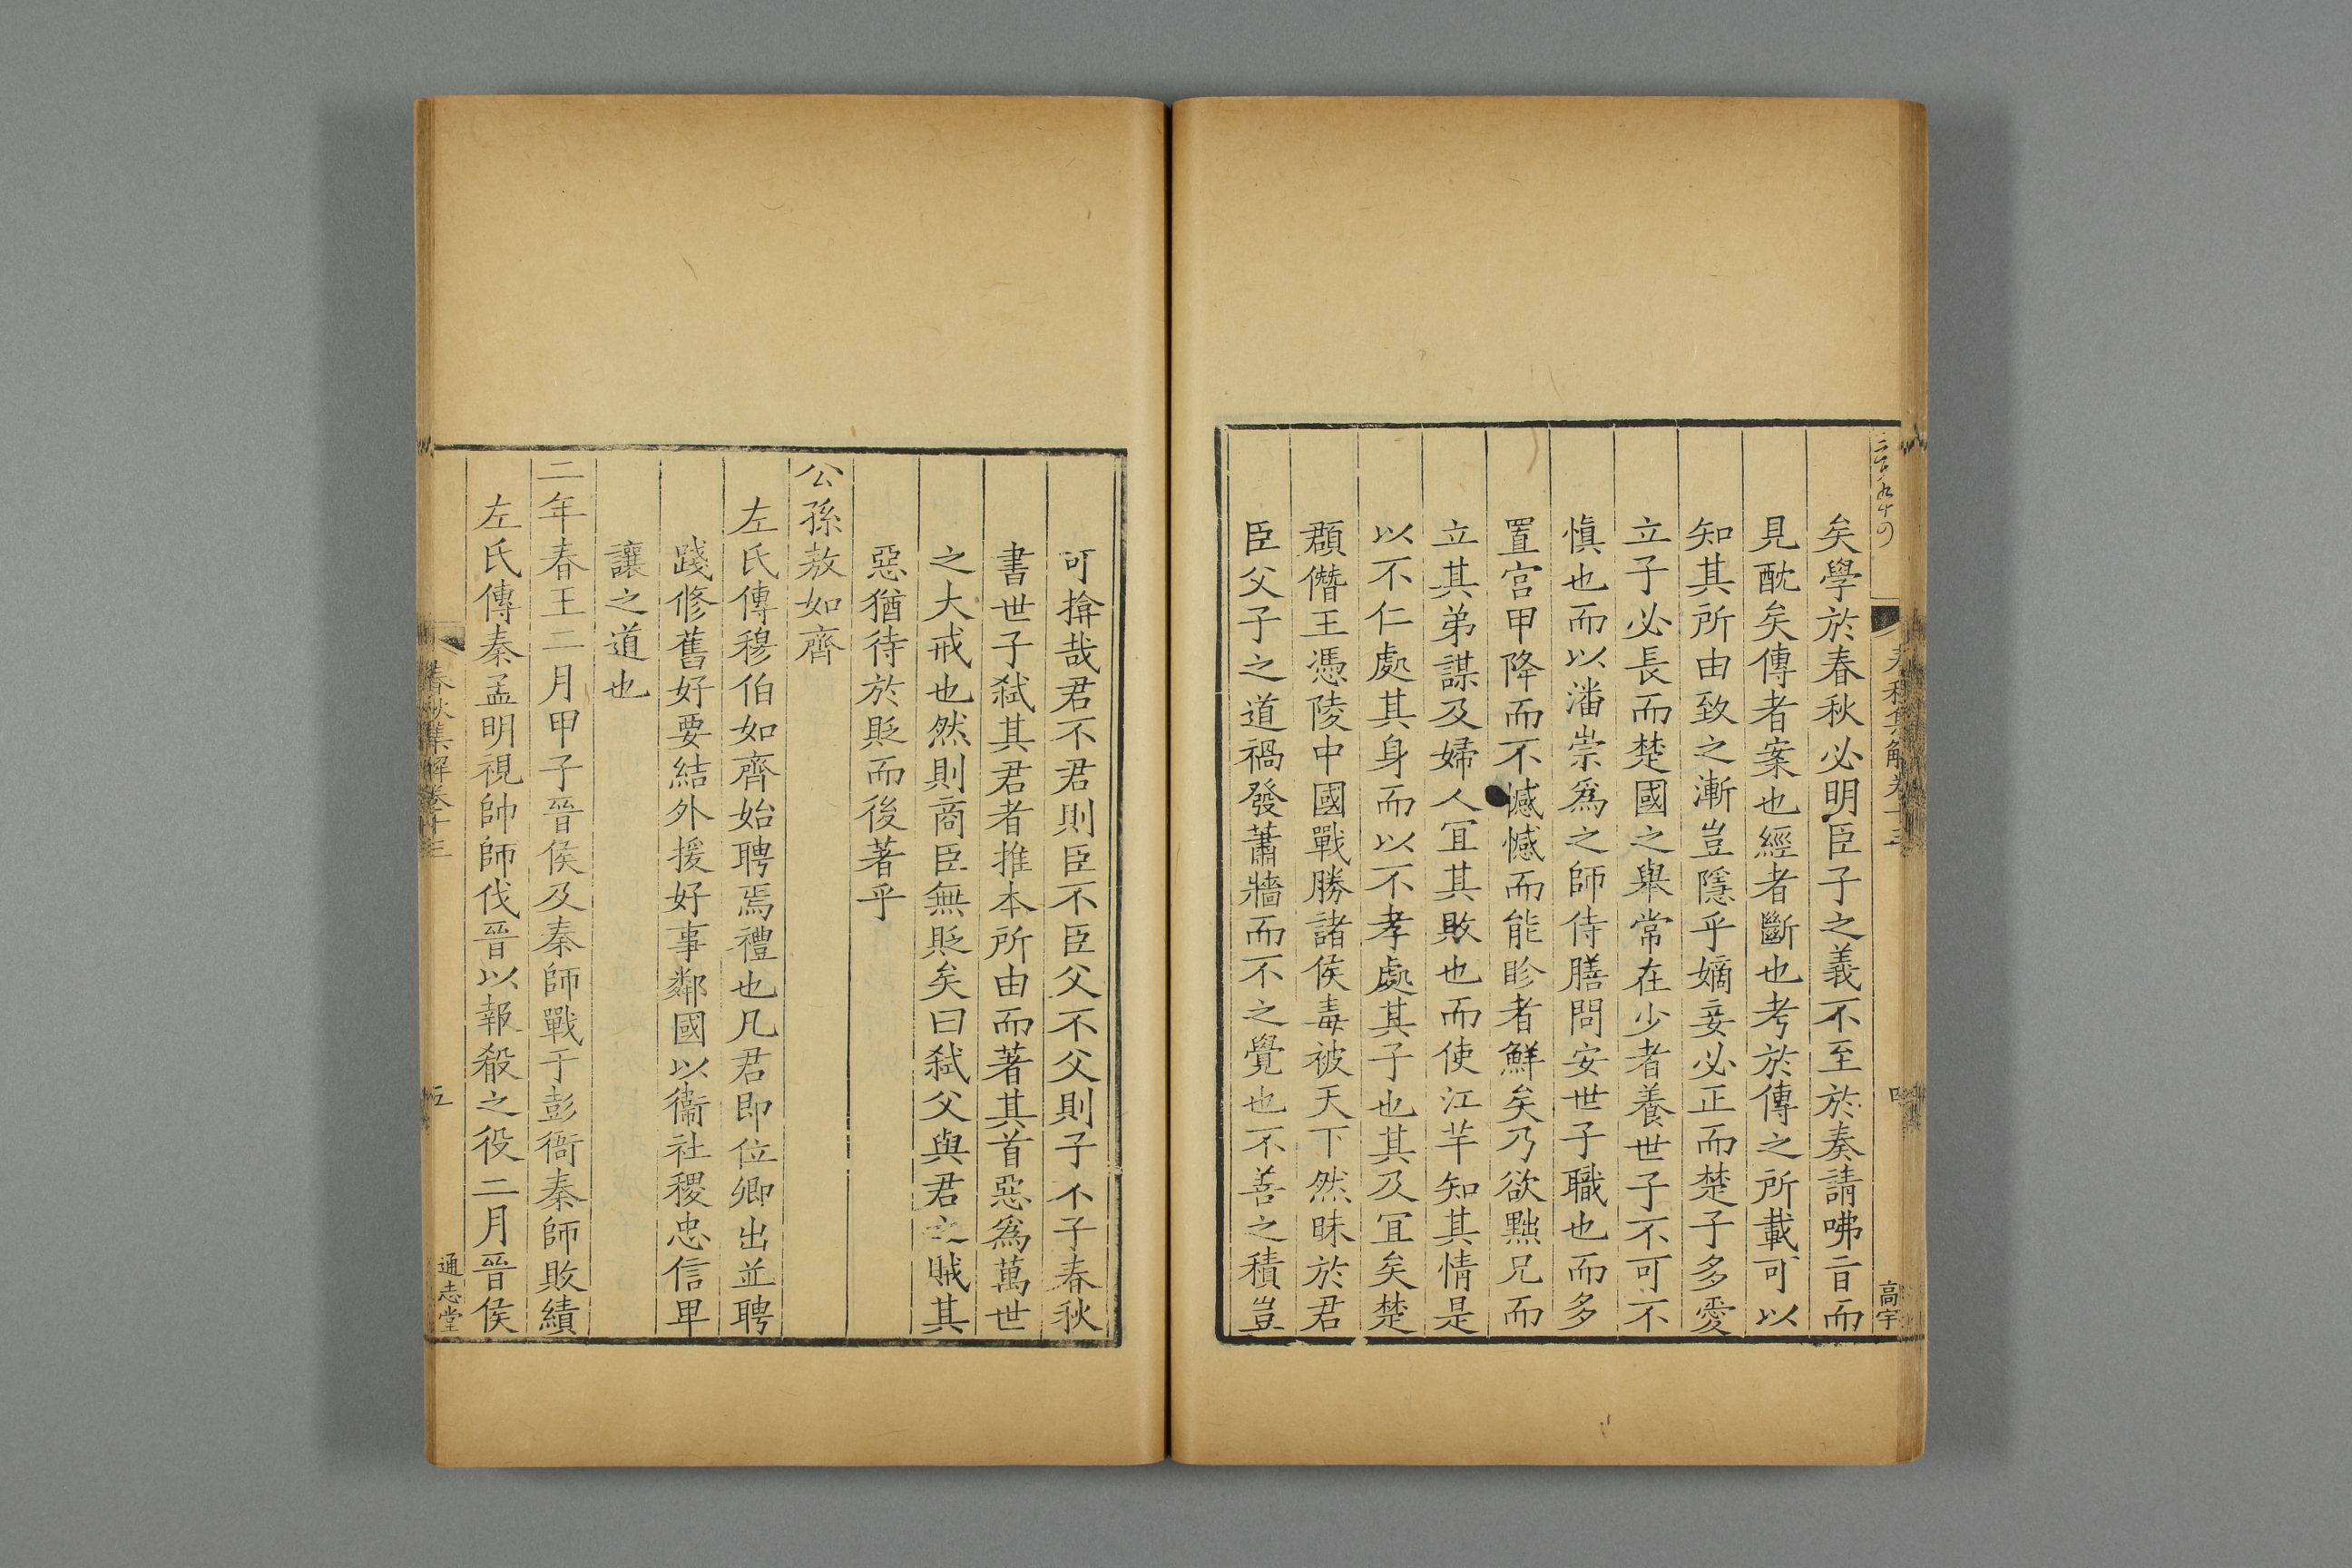 矣學於春秋必明臣子之義不至於奏請咈旨而
見酖矣傳者案也經者斷也考於傳之所載可以
知其所由致之漸豈隱乎嫡妾必正而楚子多愛
立子必長而楚國之舉常在少者養世子不可不
慎也而以潘崇爲之師侍膳問安世子職也而多
置宮甲降而不憾憾而能眕者鮮矣乃欲黜兄而
立其弟謀及婦人宜其敗也而使江芊知其情是
以不仁處其身而以不孝處其子也其及宜矣楚
頵僭王憑陵中國戰勝諸侯毒被天下然昧於君
臣父子之道禍發蕭牆而不之覺也不善之積豈
高宇
可揜哉君不君則臣不臣父不父則子不子春秋
書世子弑其君者推本所由而著其首惡爲萬世
之大戒也然則商臣無貶矣曰弑父與君之賊其
惡猶待於貶而後著乎
公孫敖如齊
左氏傳穆伯如齊始聘焉禮也凡君即位卿出並聘
踐修舊好要結外援好事鄰國以衞社稷忠信卑
讓之道也
二年春王二月甲子晉侯及秦師戰于彭衙秦師敗績
左氏傳秦孟明視帥師伐晉以報殽之役二月晉侯
春秋集解卷十三
五
通志堂